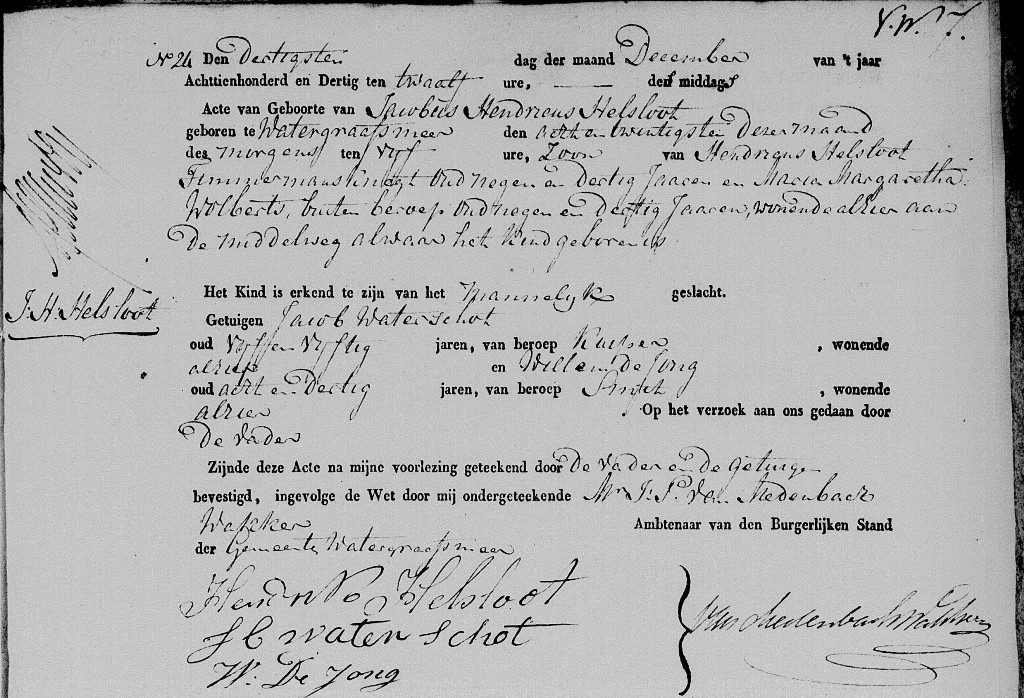 V.W. 7.
No 24 Den Dertigsten dag der maand December van 't jaar
Achttienhonderd en Dertig ten twaalf ure, — des middags
Acte van Geboorte van Jacobus Hendricus Helsloot
geboren te Watergraafsmeer den acht en twintigsten dezer maand
des morgens ten vyf ure, Zoon van Hendricus Helsloot
Timmermansknegt oud negen en dertig Jaaren en Maria Margaretha
Wolberts, buiten beroep oud negen en dertig Jaaren, wonende alhier aan
De middelweg alwaar het kind geboren is
J. H. Helsloot
Het Kind is erkend te zijn van het mannelyk geslacht.
Getuigen Jacob Waterschot
oud vyf en vyftig jaren, van beroep Kuiper, wonende
alhier en Willem de Jong
oud acht en dertig jaren, van beroep Smit, wonende
alhier Op het verzoek aan ons gedaan door
De vader
Zijnde deze Acte na mijne voorlezing geteekend door De vader en de getuigen
bevestigd, ingevolge de Wet door mij ondergeteekende Mr J. P. van Medenbach
Wakker Ambtenaar van den Burgerlijken Stand
der Gemeente Watergraafsmeer
Helsloot
waterschot
W. De Jong
van Medenbach Wakker